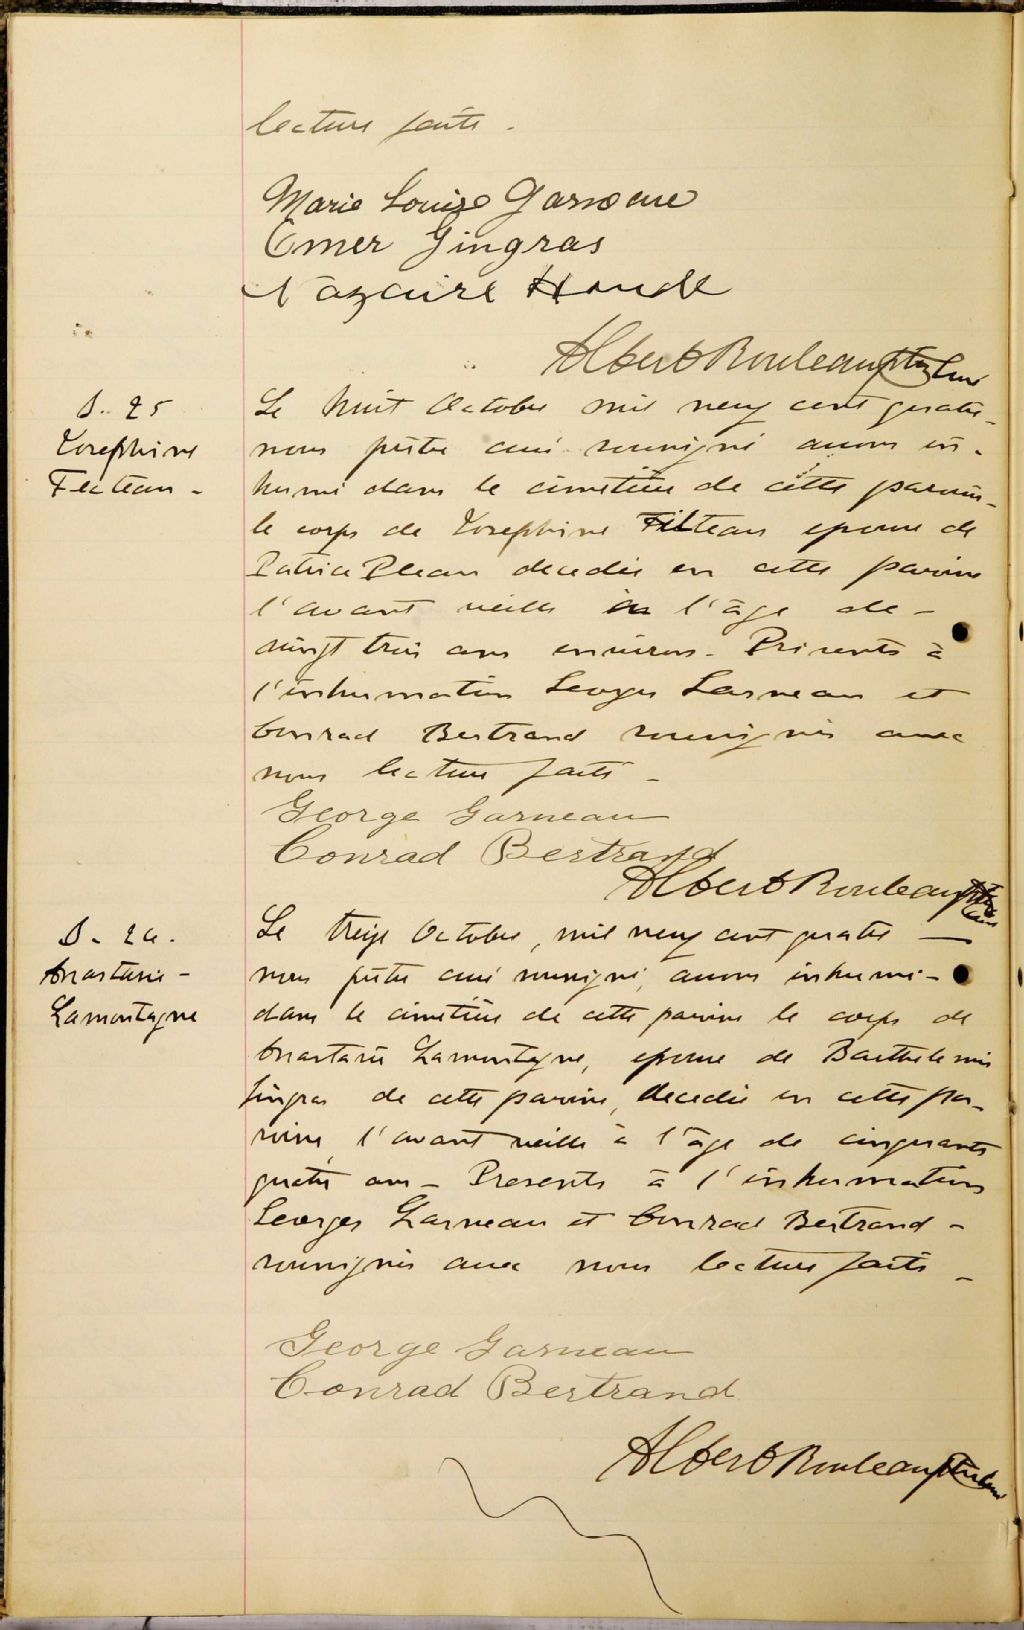 lecture faite.
Marie Louise Garneau
Omer Gingras
Nazaire Houde
Albert Rouleau ptre Curé
S.. 25
Josephine
Fecteau -
Le huit Octobre mil neuf cent quatre-
nous prêtre curé soussigné avons in-
humé dans le cimetière de cette paroisse-
le corps de Josephine Filteau epouse de
Patrice Pleau decedée en cette paroisse
l'avant veille à l'âge de -
vingt trois ans environ - Présents à
l'inhumation Georges Garneau et
Conrad Bertrand soussignés avec
nous lecture faite -
George Garneau
Conrad Bertrand
Albert Rouleau ptre curé
S - 26.
Anastasie -
Lamontagne
Le treize Octobre, mil neuf cent quatre —
nous prêtre curé soussigné, avons inhumé -
dans le cimetière de cette paroisse le corps de
Anastasie Lamontagne, epouse de Barthelemie
Gingras de cette paroisse, decedée en cette pa-
roisse, l'avant veille à l'âge de cinquante
quatre ans - Presents à l'inhumation
Georges Garneau et Conrad Bertrand -
soussignés avec nous lecture faite -
George Garneau
Conrad Bertrand
Albert Rouleau ptre curé